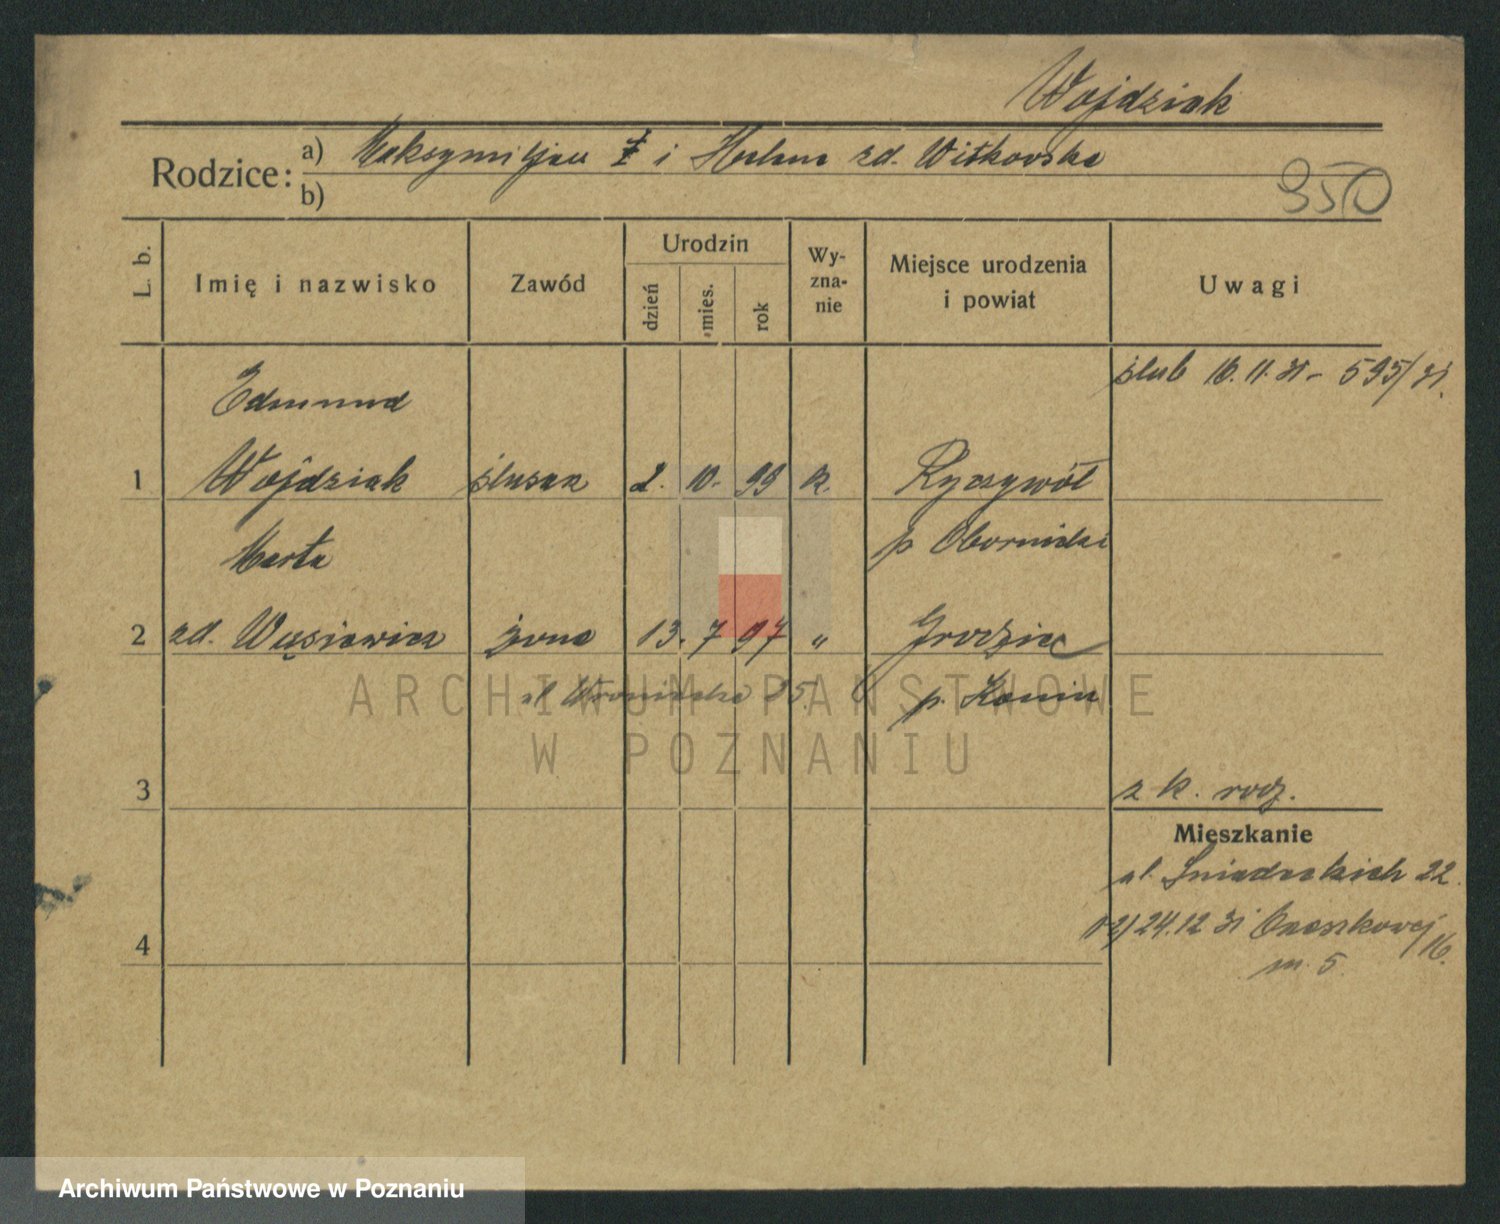 Wojdziak
Rodzice: a) Maksymiljan ‡ i Helena zd. Witkowska
b)
950
L. b.
Imię i nazwisko
Zawód
Urodzin
dzień
mies.
rok
Wy-
zna-
nie
Miejsce urodzenia
i powiat
Uwagi
ślub 16.11.31 - 595/31.
Edmund
1 Wojdziak ślusarz 2. 10. 99 k. Ryczywół
p Obornicki
Marta
2 zd. Wąsiewicz żona 13. 7 07 " Grodziec
ul. Wroniecka 25. p. Konin
ARCHIWUM PAŃSTWOWE
W POZNANIU
3
z k. rodz.
Mieszkanie
ul. Śniadeckich 22.
1-2) 24.12 31 Orzeszkowej 16.
m. 5
4
Archiwum Państwowe w Poznaniu